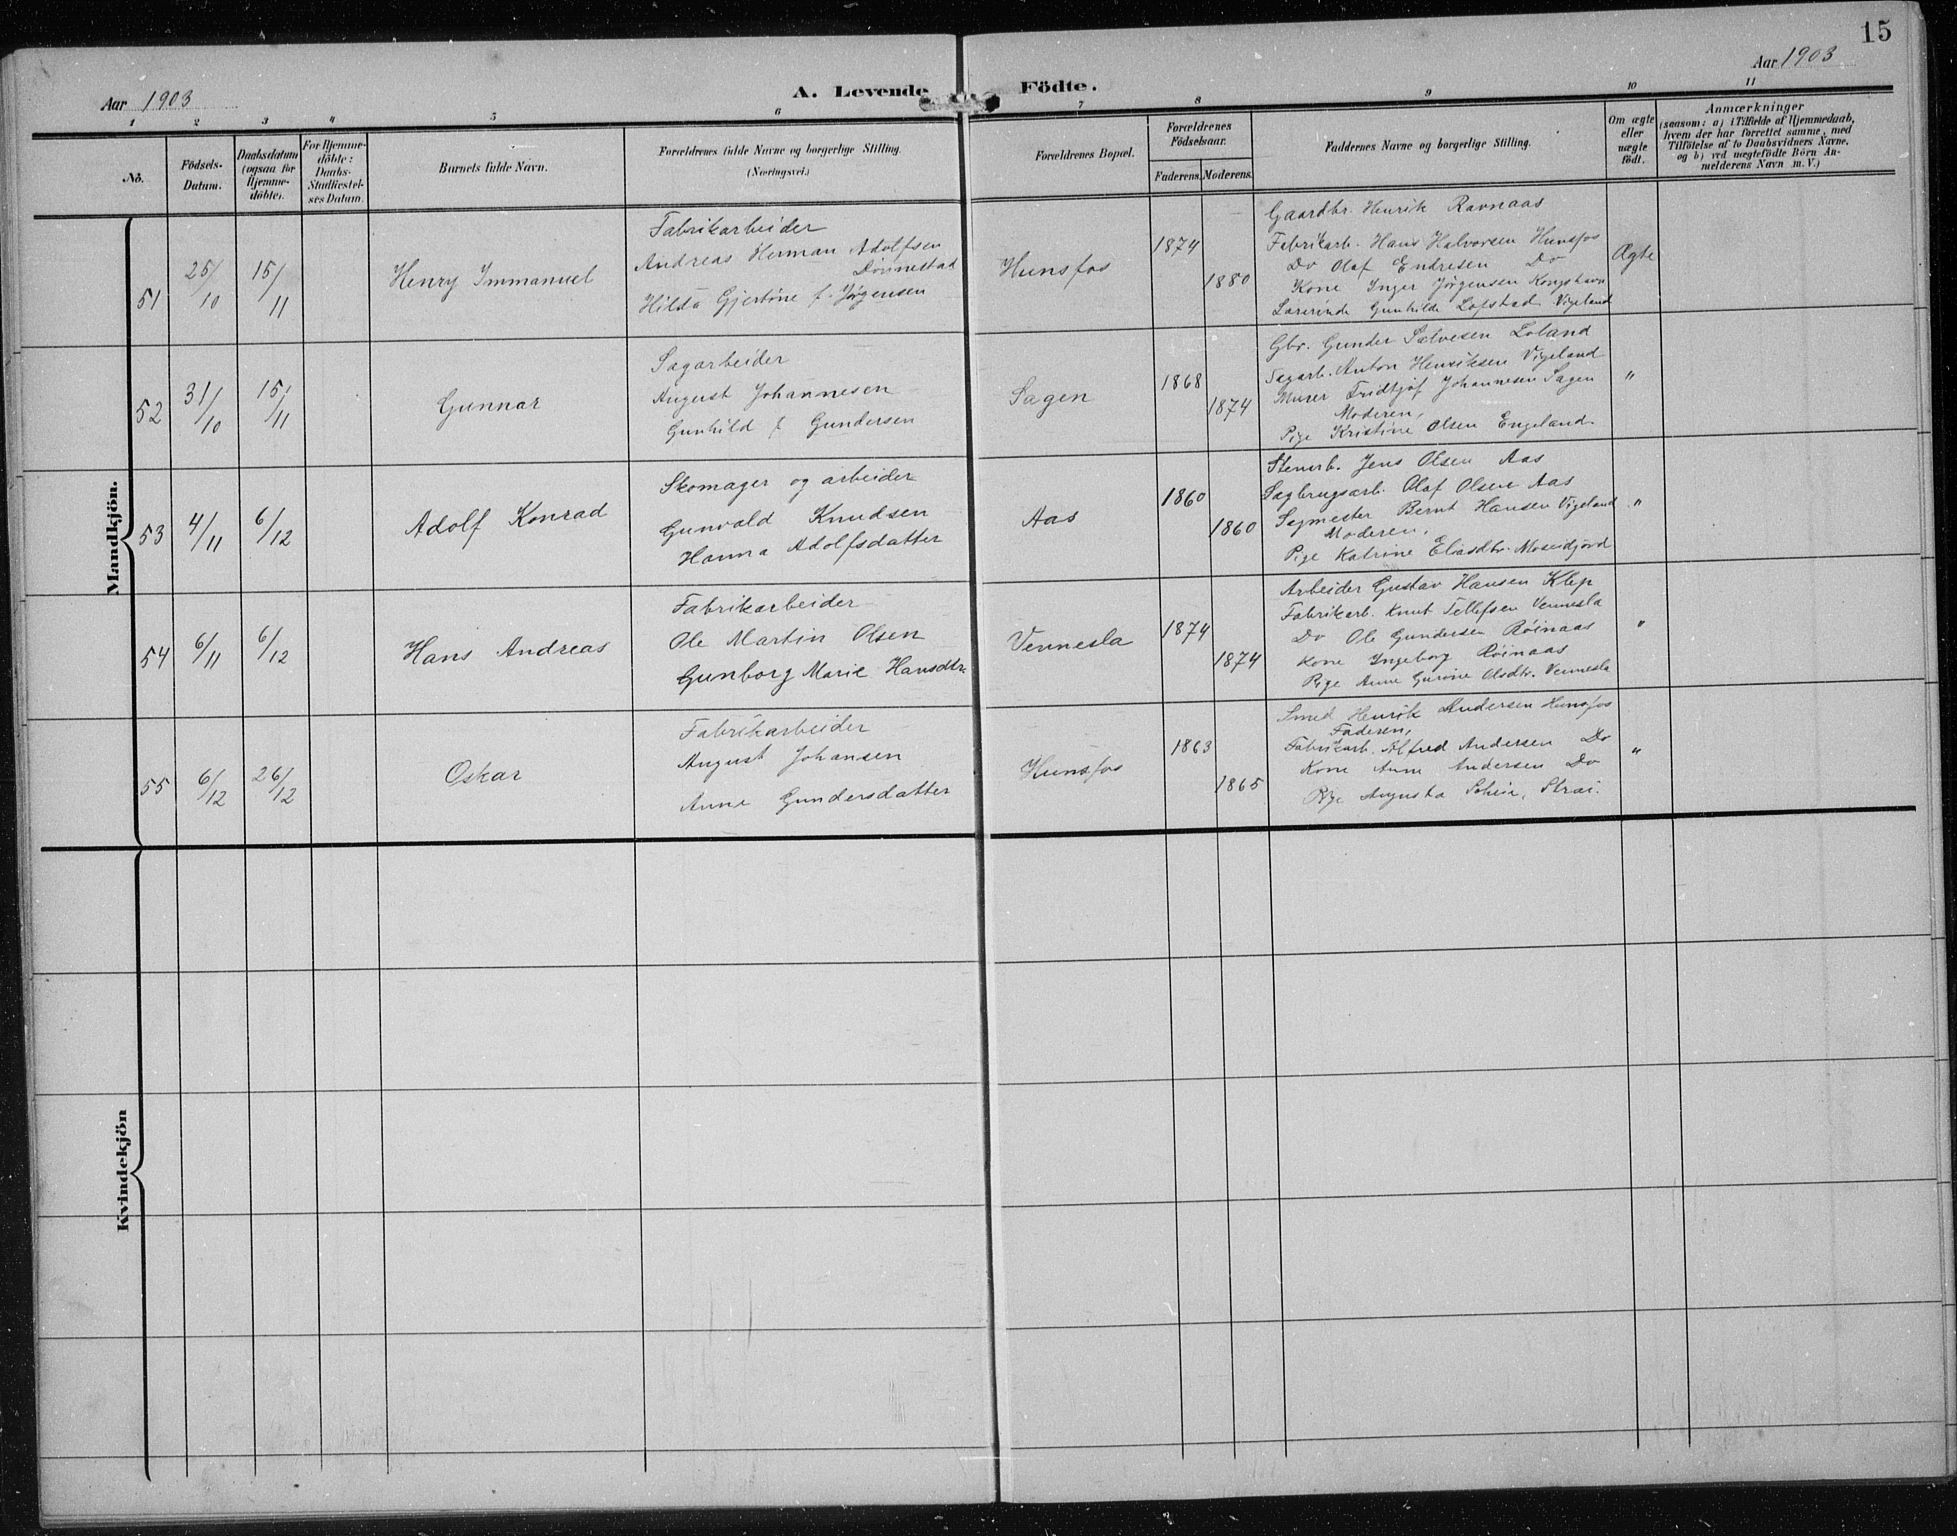 15
Aar 1903
A. Levende Födte.
Aar 1903
1 2 3 4 5 6 7 8 9 10 11
No.
Födsels-
Datum.
Daabsdatum
(ogsaa for
Hjemme-
döbte).
For Hjemme-
döbte:
Daabs-
Stadfæstel-
ses Datum.
Barnets fulde Navn.
Forældrenes fulde Navne og borgerlige Stilling.
(Næringsvei.)
Forældrenes Bopæl.
Forældrenes
Födselsaar.
Faderens. Moderens.
Faddernes Navne og borgerlige Stilling.
Om ægte
eller
uægte
födt.
Anmærkninger
(saasom: a) i Tilfælde af Hjemmedaab,
hvem der har forrettet samme, med
Tilföielse af to Daabsvidners Navne,
og b) ved uægtefödte Börn An-
melderens Navn m. V.)
Mandkjön.
51
25/10
15/11
Henry Immanuel
Fabrikarbeider
Andreas Herman Adolfsen
Dønnestad
Hilda Gjertine f. Jørgensen
Hunsfos
1874
1880
Gaardbr. Henrik Ravnaas
Fabrikarb. Hans Halvorsen Hunsfos
Do Olaf Endresen Do
Kone Inger Jørgensen Kongshavn
Lærerinde Gunhilde Lofstad Vigeland
Ægte
52
31/10
15/11
Gunnar
Sagarbeider
August Johannesen
Gunhild f. Gundersen
Sagen
1868
1874
Gbr. Gunder Salvesen Loland
Sagarb. Anton Henriksen Vigeland
Murer Fridtjof Johannesen Sagen
Moderen,
Pige Kristine Olsen Engeland.
"
53
4/11
6/12
Adolf Konrad
Skomager og arbeider
Gunvald Knudsen
Hanna Adolfsdatter
Aas
1860
1860
Stenarb. Jens Olsen Aas
Sagbrugsarb. Olaf Olsen Aas
Sagmester Bernt Hansen Vigeland
Moderen,
Pige Katrine Eliasdtr. Moseidjord
"
54
6/11
6/12
Hans Andreas
Fabrikarbeider
Ole Martin Olsen
Gunborg Marie Hansdtr.
Vennesla
1874
1874
Arbeider Gustav Hansen Klep
Fabrikarb. Knut Tellefsen Vennesla
Do Ole Gundersen Røinaas
Kone Ingeborg Røinaas
Pige Anne Gurine Olsdtr. Vennesla
"
55
6/12
26/12
Oskar
Fabrikarbeider
August Johansen
Anne Gundersdatter
Hunsfos
1863
1865
Smed Henrik Andersen Hunsfos
Faderen,
Fabrikarb. Alfred Andersen Do
Kone Anne Andersen Do
Pige Augusta Scheie, Strai.
"
Kvindekjön